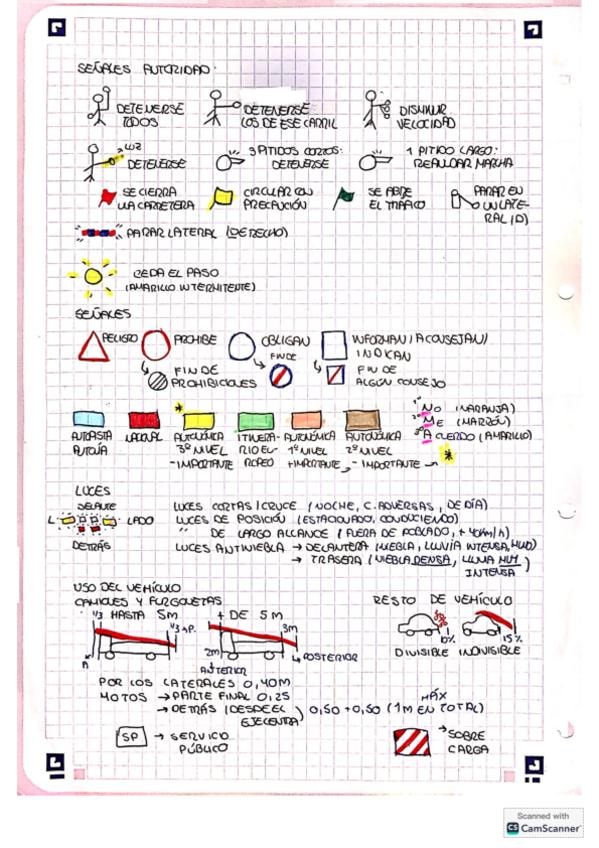 SEÑALES AUTORIDAD:
DETENERSE TODOS
DETENERSE LOS DE ESE CARRIL
DISMINUIR VELOCIDAD
LUZ
DETENERSE
3 PITIDOS CORTOS: DETENERSE
1 PITIDO LARGO: REANUDAR MARCHA
SE CIERRA LA CARRETERA
CIRCULAR CON PRECAUCIÓN
SE ABRE EL TRÁFICO
PARAR EN UN LATERAL (D)
PARAR LATERAL (DERECHO)
CEDA EL PASO
(AMARILLO INTERMITENTE)
SEÑALES
PELIGRO
PROHIBE
OBLIGAN
INFORMAN / ACONSEJAN / INDICAN
FIN DE PROHIBICIONES
FIN DE
FIN DE ALGÚN CONSEJO
AUTOPISTA AUTOVÍA
NACIONAL
AUTONÓMICA 3º NIVEL - IMPORTANTE
ITINERARIO EUROPEO
AUTONÓMICA 1º NIVEL + IMPORTANTE
AUTONÓMICA 2º NIVEL - IMPORTANTE
1º NO (NARANJA)
2º ME (MARRÓN)
3º ACUERDO (AMARILLO)
LUCES
DELANTE
L LADO
DETRÁS
LUCES CORTAS / CRUCE (NOCHE, C. ADVERSAS, DE DÍA)
LUCES DE POSICIÓN (ESTACIONADO, CONDUCIENDO)
" DE LARGO ALCANCE (FUERA DE POBLADO, + 40KM/H)
LUCES ANTINIEBLA → DELANTERA (NIEBLA, LLUVIA INTENSA, HUMO)
→ TRASERA (NIEBLA DENSA, LLUVIA MUY INTENSA)
USO DEL VEHÍCULO
CAMIONES Y FURGONETAS
RESTO DE VEHÍCULO
1/3 HASTA 5m
1/3 P.
A
+ DE 5m
3m
2m
ANTERIOR
POSTERIOR
10%
15%
DIVISIBLE INDIVISIBLE
POR LOS LATERALES 0,40M
MOTOS → PARTE FINAL 0,25
→ DETRÁS (DESDE EL EJE CENTRAL) 0,50 + 0,50 (1M EN TOTAL)
MÁX
SP → SERVICIO PÚBLICO
→ SOBRE CARGA
Scanned with
CS CamScanner